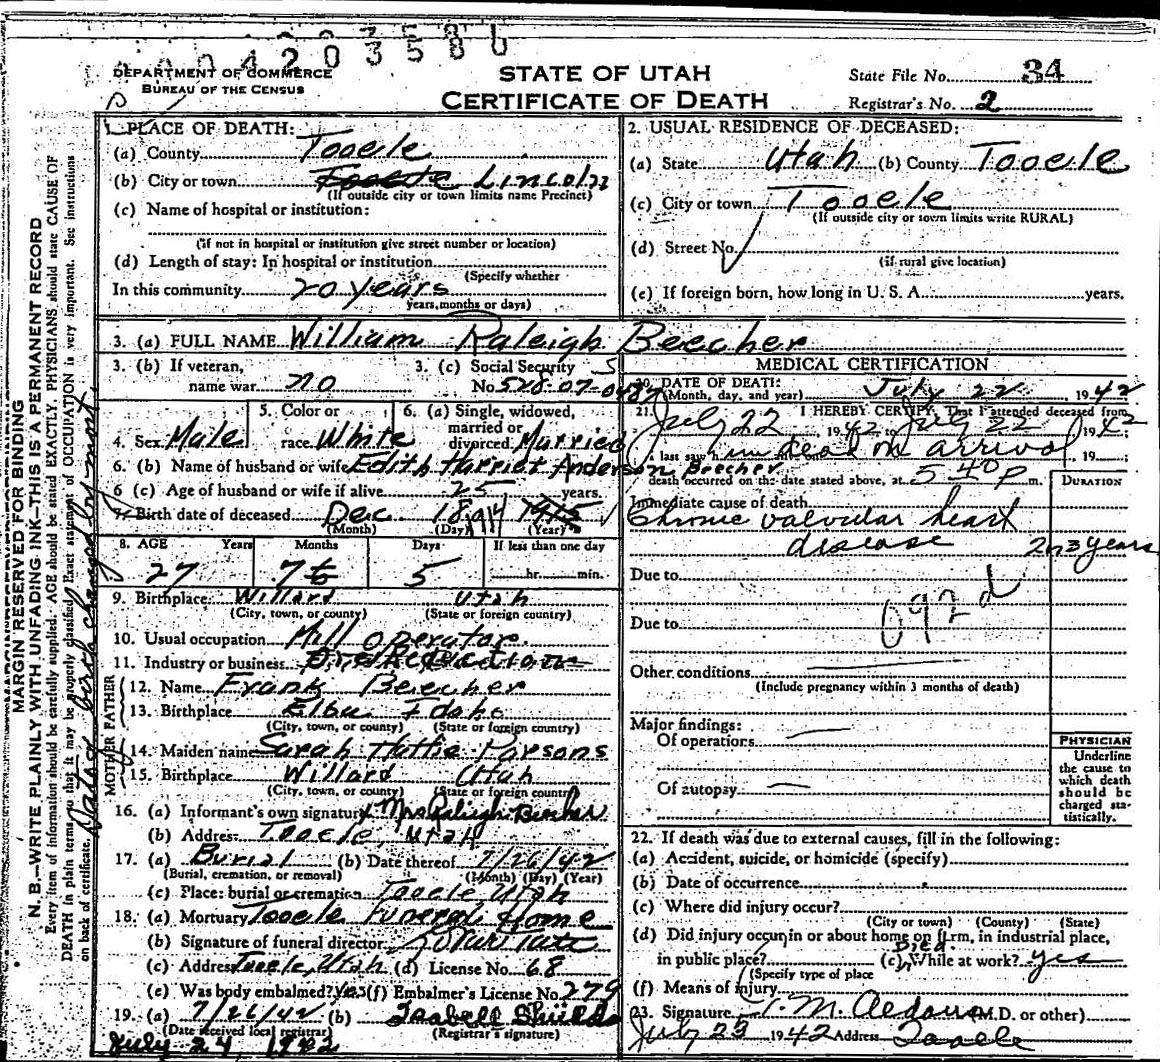 0004203580
DEPARTMENT OF COMMERCE
BUREAU OF THE CENSUS
STATE OF UTAH
CERTIFICATE OF DEATH
State File No. 34
Registrar's No. 2
1. PLACE OF DEATH:
(a) County Tooele
(b) City or town Tooele Lincoln
(If outside city or town limits name Precinct)
(c) Name of hospital or institution:
(If not in hospital or institution give street number or location)
(d) Length of stay: In hospital or institution
(Specify whether
In this community 20 years
years, months or days)
2. USUAL RESIDENCE OF DECEASED:
(a) State Utah (b) County Tooele
(c) City or town Tooele
(If outside city or town limits write RURAL)
(d) Street No.
(if rural give location)
(e) If foreign born, how long in U. S. A. years.
3. (a) FULL NAME William Raleigh Beecher
3. (b) If veteran,
name war no
3. (c) Social Security
No. 528-07-0487
4. Sex Male
5. Color or
race White
6. (a) Single, widowed,
married or
divorced Married
6. (b) Name of husband or wife Edith Harriet Anderson Beecher
6 (c) Age of husband or wife if alive 25 years.
7. Birth date of deceased Dec. 18 1914 1915
(Month) (Day) (Year)
8. AGE Years Months Days If less than one day
27 7 6 5 hr. min.
9. Birthplace Willard Utah
(City, town, or county) (State or foreign country)
10. Usual occupation Mill operator
11. Industry or business
FATHER
12. Name Frank Beecher
13. Birthplace Elba Idaho
(City, town, or county) (State or foreign country)
MOTHER
14. Maiden name Sarah Hattie Parsons
15. Birthplace Willard Utah
(City, town, or county) (State or foreign country)
16. (a) Informant's own signature x Mrs Raleigh Beecher
(b) Address Tooele, Utah
17. (a) Burial (b) Date thereof 7/26/42
(Burial, cremation, or removal) (Month) (Day) (Year)
(c) Place: burial or cremation Tooele Utah
18. (a) Mortuary Tooele Funeral Home
(b) Signature of funeral director
(c) Address Tooele, Utah (d) License No. 68
(e) Was body embalmed? yes (f) Embalmer's License No. 279
19. (a) 7/26/42 (b) Isabell Shields
(Date received local registrar) (Registrar's signature)
July 24, 1942
MEDICAL CERTIFICATION
20. DATE OF DEATH: July 22 1942
(Month, day, and year)
21. I HEREBY CERTIFY, That I attended deceased from
July 22 1942 to July 22 1942;
I last saw him dead on arrival, 19 ;
death occurred on the date stated above, at 5 40 P m.
DURATION
Immediate cause of death
Chronic valvular heart
disease 2 or 3 years
Due to
092 d
Due to
Other conditions
(Include pregnancy within 3 months of death)
Major findings:
Of operations
Of autopsy
PHYSICIAN
Underline
the cause to
which death
should be
charged sta-
tistically.
22. If death was due to external causes, fill in the following:
(a) Accident, suicide, or homicide (specify)
(b) Date of occurrence
(c) Where did injury occur?
(City or town) (County) (State)
(d) Did injury occur in or about home on farm, in industrial place,
in public place? (e) Died While at work? yes
(Specify type of place
(f) Means of injury
23. Signature M.D. or other)
July 23 1942 Address Tooele
MARGIN RESERVED FOR BINDING
N. B.—WRITE PLAINLY WITH UNFADING INK—THIS IS A PERMANENT RECORD
Every item of information should be carefully supplied. AGE should be stated EXACTLY. PHYSICIANS should state CAUSE OF
DEATH in plain terms so that it may be properly classified. Exact statement of OCCUPATION is very important. See instructions
on back of certificate.
Date of birth changed by